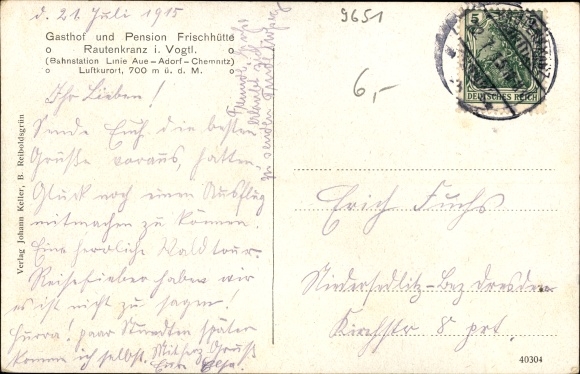 d. 21. Juli 1915
9651
Gasthof und Pension Frischhütte
Rautenkranz i. Vogtl.
(Bahnstation Linie Aue-Adorf-Chemnitz)
Luftkurort, 700 m ü. d. M.
6,-
5
DEUTSCHES REICH
Ihr Lieben!
Sende Euch die besten
Grüße voraus, hatten
Glück noch einen Ausflug
mitmachen zu können.
Eine herrliche Waldtour.
Reisefieber haben wir
es ist nicht zu sagen!
Hurra! paar Stunden später
komme ich selbst. Mit herz. Gruß
Eure
zu senden
Verlag Johann Keller, B. Reiboldsgrün
Erich Fuchs
Niedersedlitz-Bez Dresden
Kirchstr 8 prt.
40304